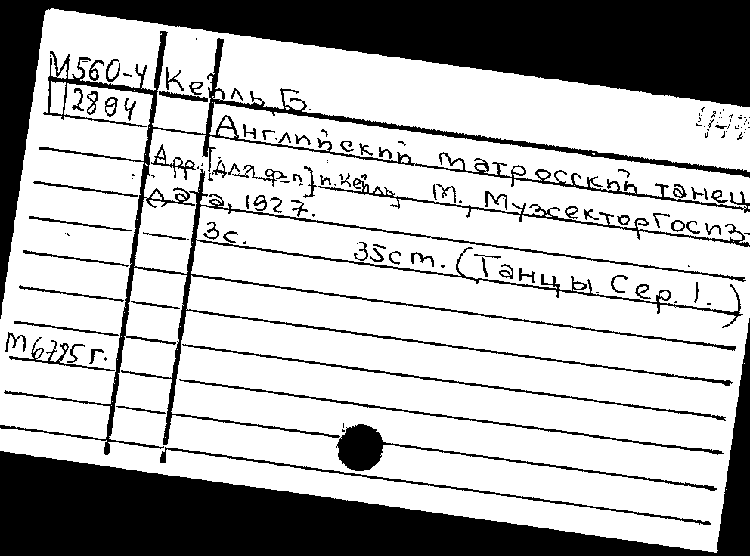 М560-4 Кейль, Б.
2894
Английский матросский танец
Арр. [для ф-п] п. Кейль, М., Музсектор Госиз-
дата, 1927.
3с. 35см. (Танцы. Сер. 1.)
М6795 г.